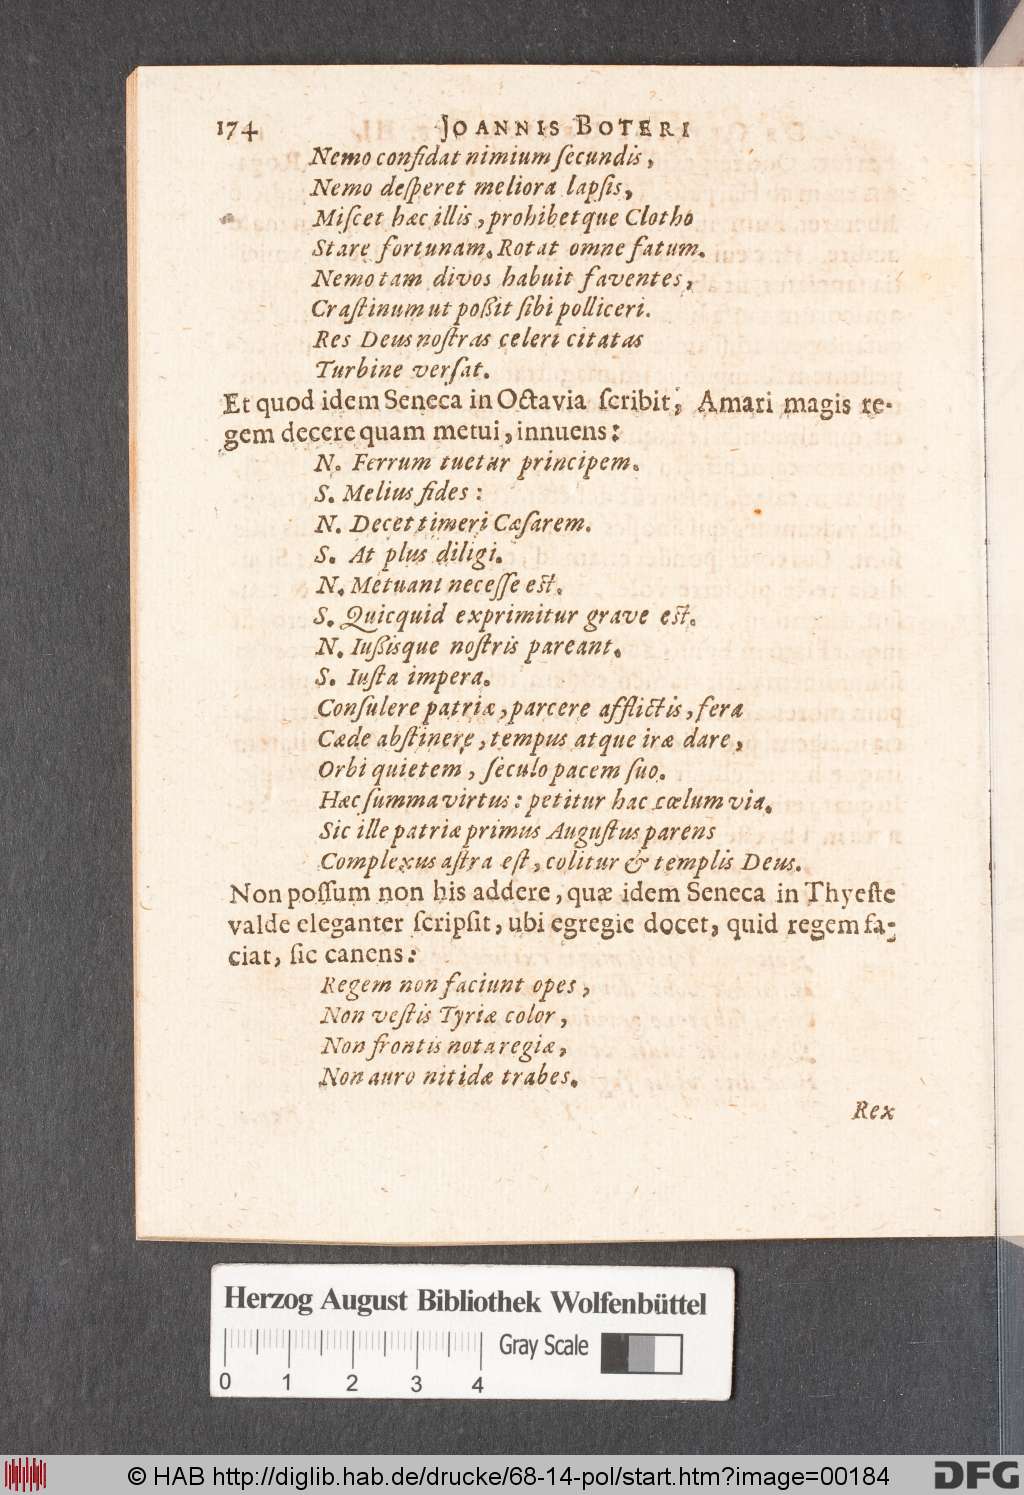 174 JOANNIS BOTERI
Nemo confidat nimium ſecundis,
Nemo deſperet meliora lapſis,
Miſcet hæc illis, prohibetque Clotho
Stare fortunam. Rotat omne fatum.
Nemo tam divos habuit faventes,
Craſtinum ut poßit ſibi polliceri.
Res Deus noſtras celeri citatas
Turbine verſat.
Et quod idem Seneca in Octavia ſcribit; Amari magis re-
gem decere quam metui, innuens:
N. Ferrum tuetur principem.
S. Melius fides:
N. Decet timeri Cæſarem.
S. At plus diligi.
N. Metuant neceſſe eſt.
S. Quicquid exprimitur grave eſt.
N. Iußisque noſtris pareant.
S. Iuſta impera.
Conſulere patriæ, parcere afflictis, fera
Cæde abſtinere, tempus atque iræ dare,
Orbi quietem, ſeculo pacem ſuo.
Hæc ſumma virtus: petitur hac cœlum via.
Sic ille patriæ primus Auguſtus parens
Complexus aſtra eſt, colitur & templis Deus.
Non poſſum non his addere, quæ idem Seneca in Thyeſte
valde eleganter ſcripſit, ubi egregie docet, quid regem fa-
ciat, ſic canens:
Regem non faciunt opes,
Non veſtis Tyriæ color,
Non frontis nota regiæ,
Non auro nitidæ trabes.
Rex
Herzog August Bibliothek Wolfenbüttel
Gray Scale
0 1 2 3 4
© HAB http://diglib.hab.de/drucke/68-14-pol/start.htm?image=00184
DFG